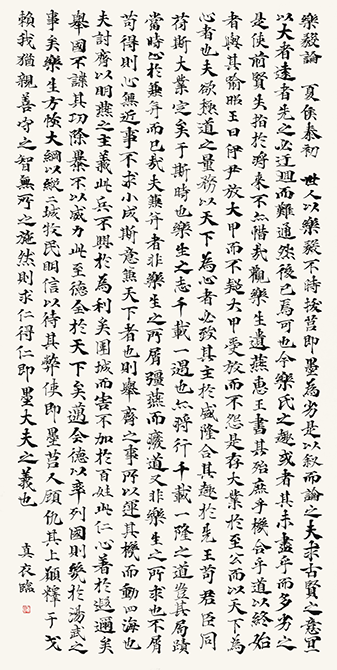 樂毅論 夏侯泰初 世人以樂毅不時拔莒即墨為劣是以叙而論之夫求古賢之意宜
以大者遠者先之必迂迴而難通然後已焉可也今樂氏之趣或者其未盡乎而多劣之
是使前賢失指於將來不亦惜哉觀樂生遺燕惠王書其殆庶乎機合乎道以終始
者與其喻昭王曰伊尹放大甲而不疑大甲受放而不怨是存大業於至公而以天下為
心者也夫欲極道之量務以天下為心者必致其主於盛隆合其趣於先王苟君臣同
苻斯大業定矣于斯時也樂生之志千載一遇也亦將行千載一隆之道豈其局蹟
當時心於兼并而已哉夫兼并者非樂生之所屑彊燕而廢道又非樂生之所求也不屑
苟得則心無近事不求小成斯意兼天下者也則舉齊之事所以運其機而動四海也
夫討齊以明燕之主義此兵不興於為利矣圍城而害不加於百姓此仁心著於遐邇矣
舉國不謀其功除暴不以威力此至德全於天下矣邁全德以率列國則幾於湯武之
事矣樂生方恢大綱以縱二城牧民明信以待其弊使即墨莒人顧仇其上願釋干戈
賴我猶親善守之智無所之施然則求仁得仁即墨大夫之義也
臨